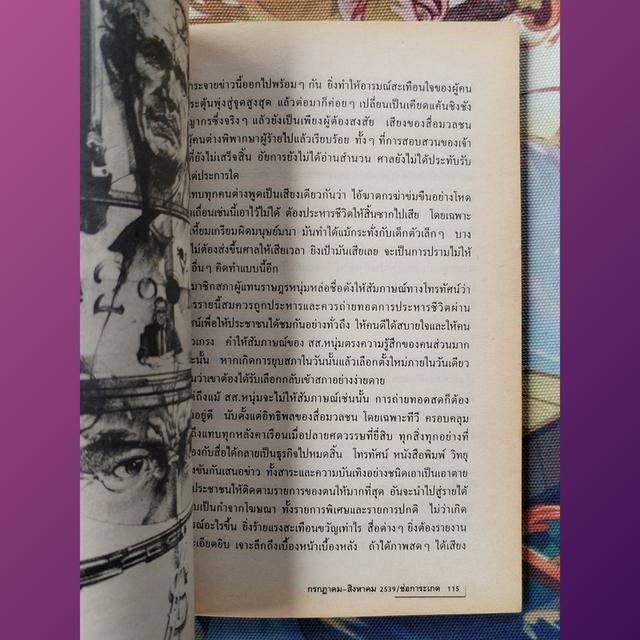 ระจายข่าวนี้ออกไปพร้อมๆ กัน ยิ่งทำให้อารมณ์สะเทือนใจของผู้คน
ระตุ้นพุ่งสู่จุดสูงสุด แล้วต่อมาก็ค่อยๆ เปลี่ยนเป็นเคียดแค้นชิงชัง
ญากรซึ่งจริงๆ แล้วยังเป็นเพียงผู้ต้องสงสัย เสียงของสื่อมวลชน
ผู้คนต่างพิพากษาผู้ร้ายไปแล้วเรียบร้อย ทั้งๆ ที่การสอบสวนของเจ้า
ที่ยังไม่เสร็จสิ้น อัยการยังไม่ได้อ่านสำนวน ศาลยังไม่ได้ประทับรับ
ต่ประการใด
ทบทุกคนต่างพูดเป็นเสียงเดียวกันว่า ไอ้ฆาตกรฆ่าข่มขืนอย่างโหด
เถื่อนเช่นนี้เอาไว้ไม่ได้ ต้องประหารชีวิตให้สิ้นซากไปเสีย โดยเฉพาะ
เหี้ยมเกรียมผิดมนุษย์มนา มันทำได้แม้กระทั่งกับเด็กตัวเล็กๆ บาง
ไม่ต้องส่งขึ้นศาลให้เสียเวลา ยิงเป้ามันเสียเลย จะเป็นการปรามไม่ให้
อื่นๆ คิดทำแบบนี้อีก
มาชิกสภาผู้แทนราษฎรหนุ่มหล่อชื่อดังให้สัมภาษณ์ทางโทรทัศน์ว่า
รรายนี้สมควรถูกประหารและควรถ่ายทอดการประหารชีวิตผ่าน
ศน์เพื่อให้ประชาชนได้ชมกันอย่างทั่วถึง ให้คนดีได้สบายใจและให้คน
วเกรง คำให้สัมภาษณ์ของ สส.หนุ่มตรงความรู้สึกของคนส่วนมาก
ะนั้น หากเกิดการยุบสภาในวันนั้นแล้วเลือกตั้งใหม่ภายในวันเดียว
นว่าเขาต้องได้รับเลือกกลับเข้าสภาอย่างง่ายดาย
ถึงแม้ สส.หนุ่มจะไม่ให้สัมภาษณ์เช่นนั้น การถ่ายทอดสดก็ต้อง
นอยู่ดี นับตั้งแต่อิทธิพลของสื่อมวลชน โดยเฉพาะทีวี ครอบคลุม
ถึงแทบทุกหลังคาเรือนเมื่อปลายศตวรรษที่ยี่สิบ ทุกสิ่งทุกอย่างที่
องกับสื่อได้กลายเป็นธุรกิจไปหมดสิ้น โทรทัศน์ หนังสือพิมพ์ วิทยุ
งขันกันเสนอข่าว ทั้งสาระและความบันเทิงอย่างชนิดเอาเป็นเอาตาย
ประชาชนให้ติดตามรายการของตนให้มากที่สุด อันจะนำไปสู่รายได้
บเป็นกำจากโฆษณา ทั้งรายการพิเศษและรายการปกติ ไม่ว่าเกิด
ณ์อะไรขึ้น ยิ่งร้ายแรงสะเทือนขวัญเท่าไร สื่อต่างๆ ยิ่งต้องรายงาน
ะเอียดยิบ เจาะลึกถึงเบื้องหน้าเบื้องหลัง ถ้าได้ภาพสดๆ ได้เสียง
กรกฎาคม-สิงหาคม 2539/ช่อการะเกด 115